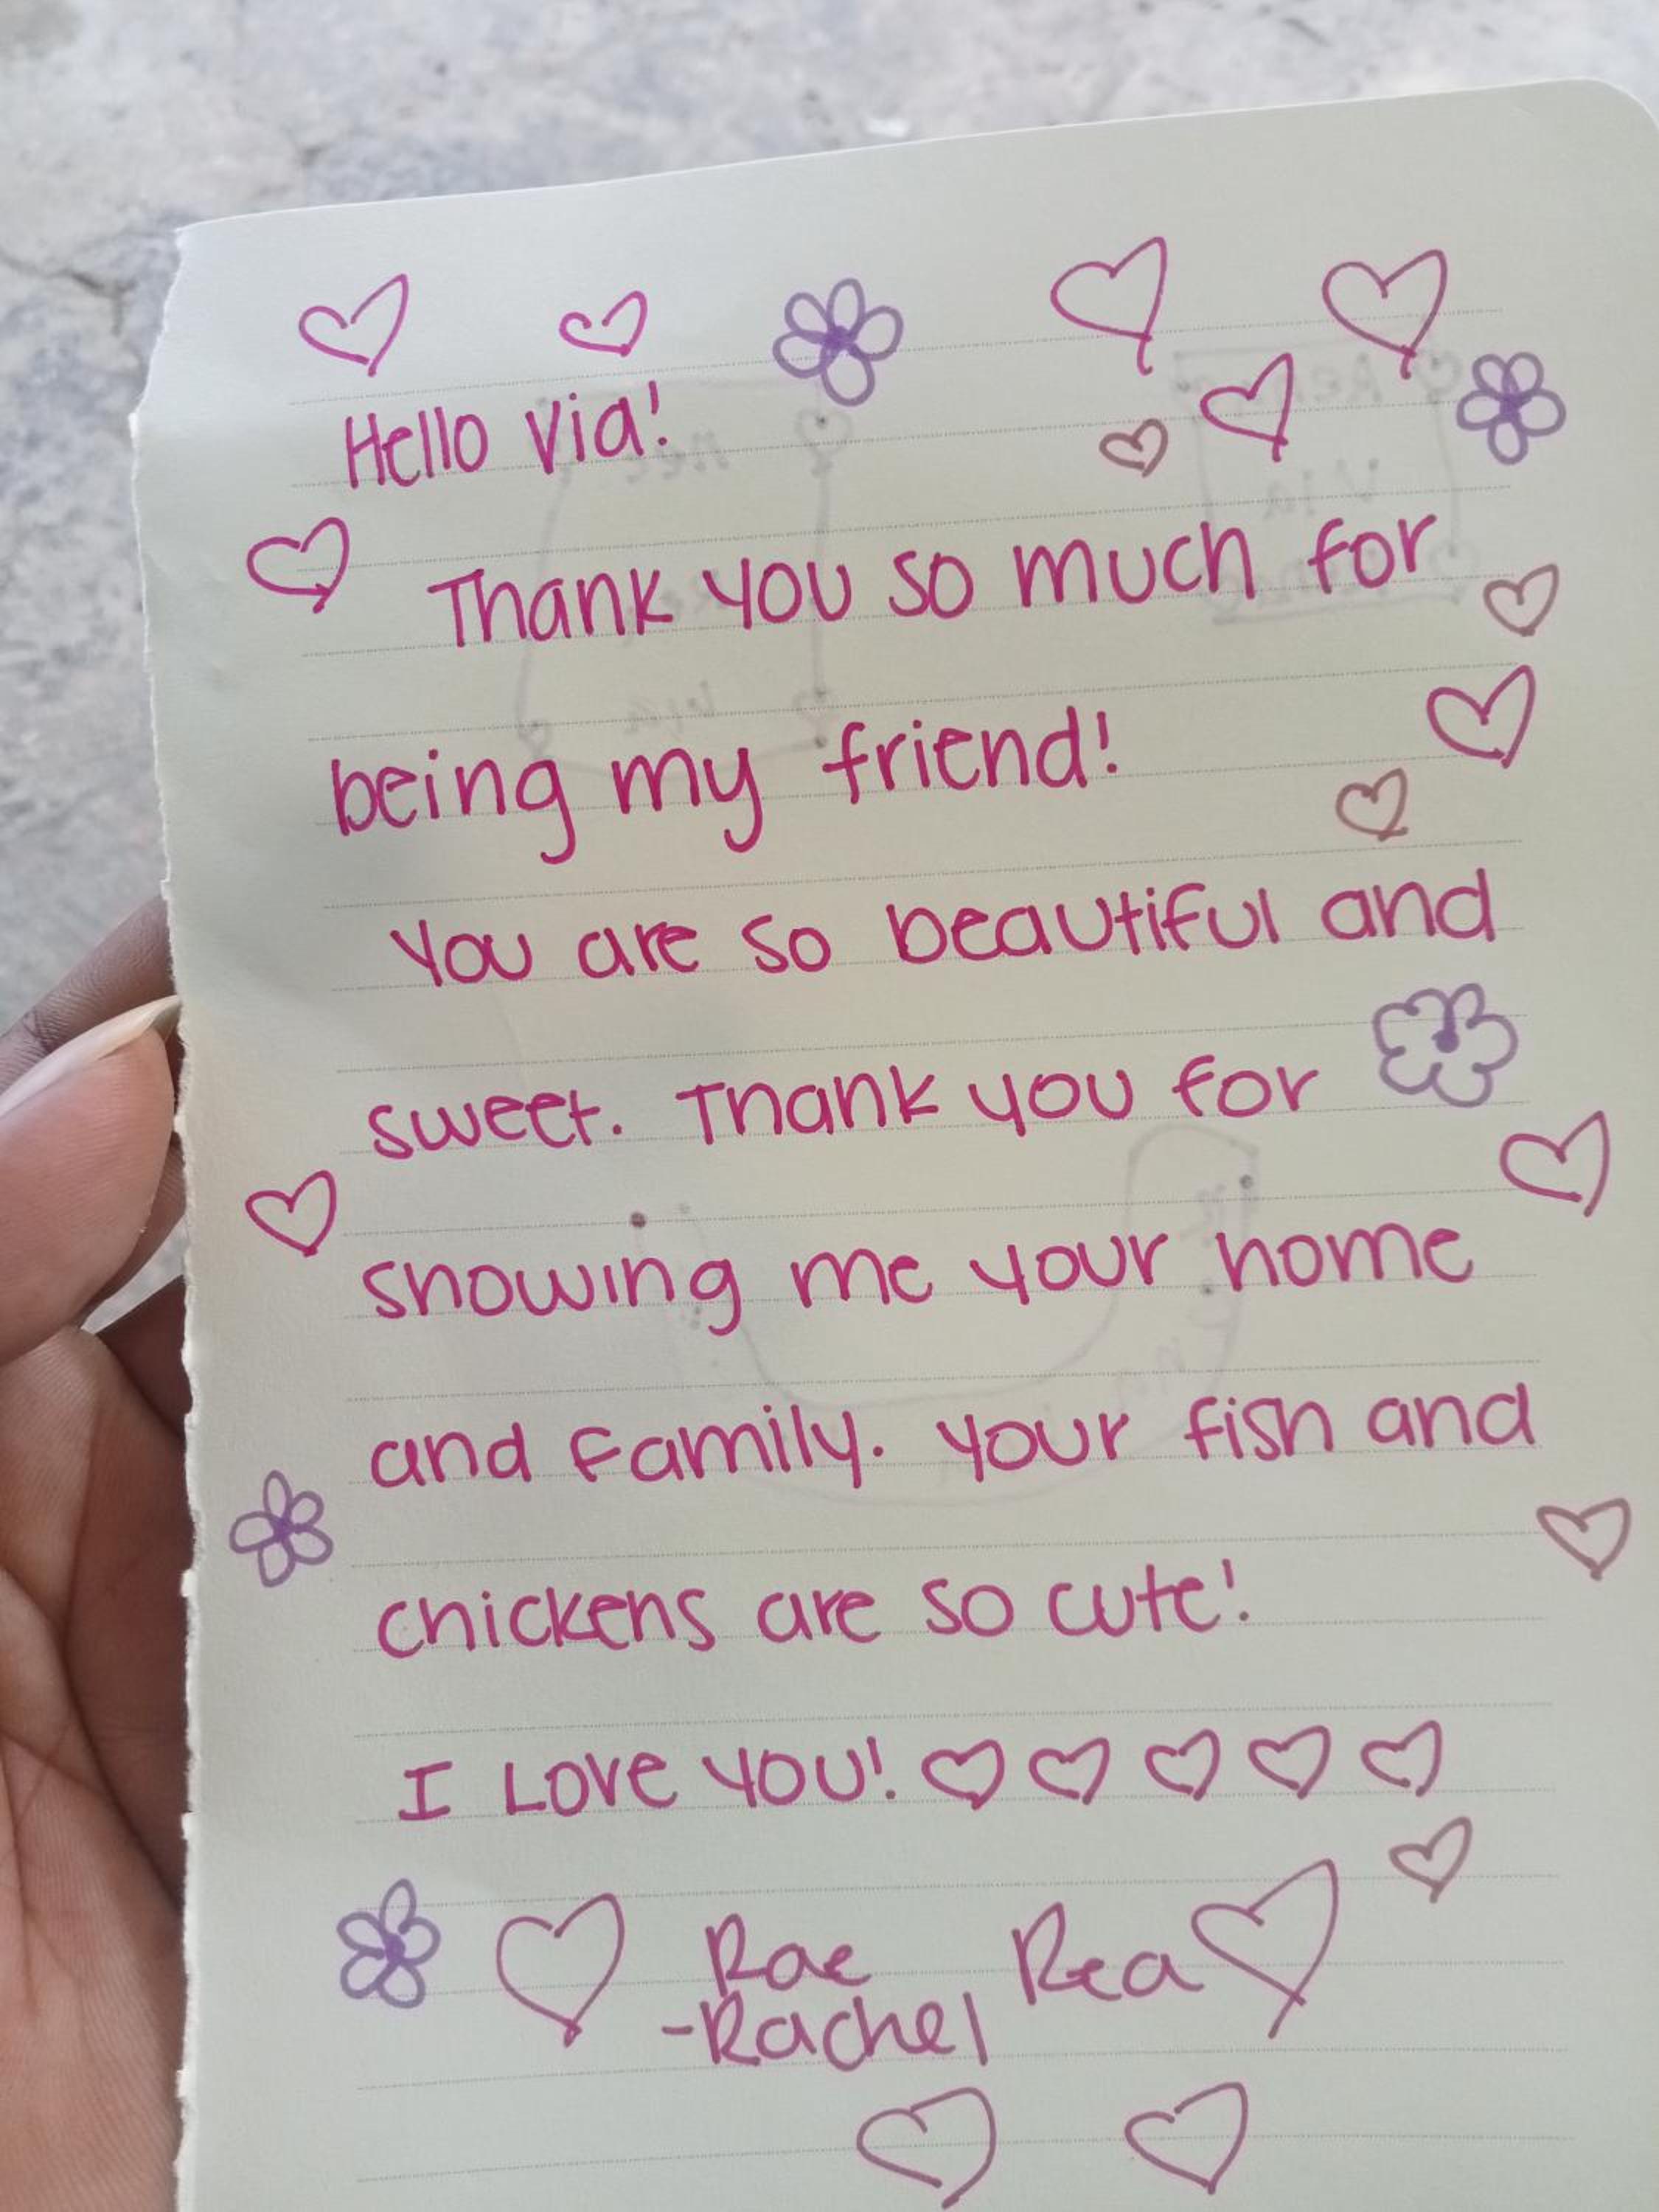 Hello Via!
Thank you so much for
being my friend!
You are so beautiful and
sweet. Thank you for
showing me your home
and family. Your fish and
chickens are so cute!
I LOVE YOU!
Rae Rea
-Rachel